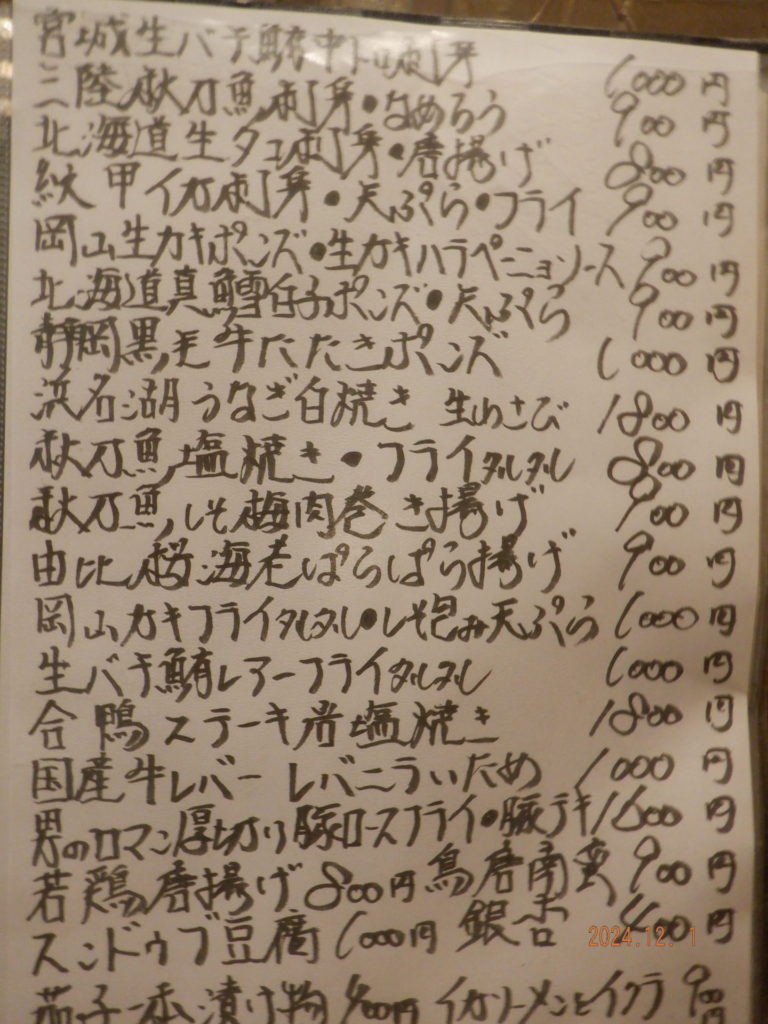 宮城生バチ鮪中トロ刺身 1000円
三陸秋刀魚刺身・なめろう 900円
北海道生タコ刺身・唐揚げ 800円
紋甲イカ刺身・天ぷら・フライ 900円
岡山生カキポンズ・生カキハラペーニョソース 900円
北海道真鱈白子ポンズ・天ぷら 900円
静岡黒毛牛たたきポンズ 1000円
浜名湖うなぎ白焼き 生わさび 1800円
秋刀魚塩焼き・フライタルタル 800円
秋刀魚しそ梅肉巻き揚げ 900円
由比桜海老ぱらぱら揚げ 900円
岡山カキフライタルタル・しそ包み天ぷら 1000円
生バチ鮪レアーフライタルタル 1000円
合鴨ステーキ岩塩焼き 1800円
国産牛レバー レバニラいため 1000円
男のロマン厚切り豚ロースフライ・豚テキ 1600円
若鶏唐揚げ 800円 鳥唐南蛮 900円
スンドゥブ豆腐 1000円 銀杏 400円
茄子一本漬け物 円 イカソーメンとイクラ 900円
2024.12. 1